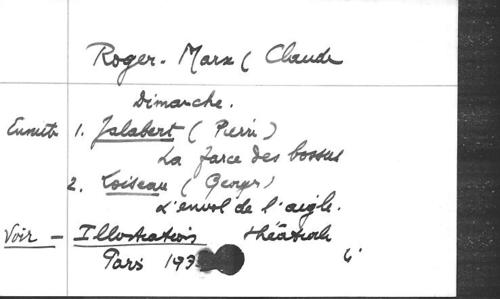 Roger-Marx (Claude
Dimanche.
Ensuite 1. Jalabert (Pierre)
La farce des bossus
2. Loiseau (Georges)
L'envol de l'aigle.
Voir - Illustration théâtrale
Paris 193